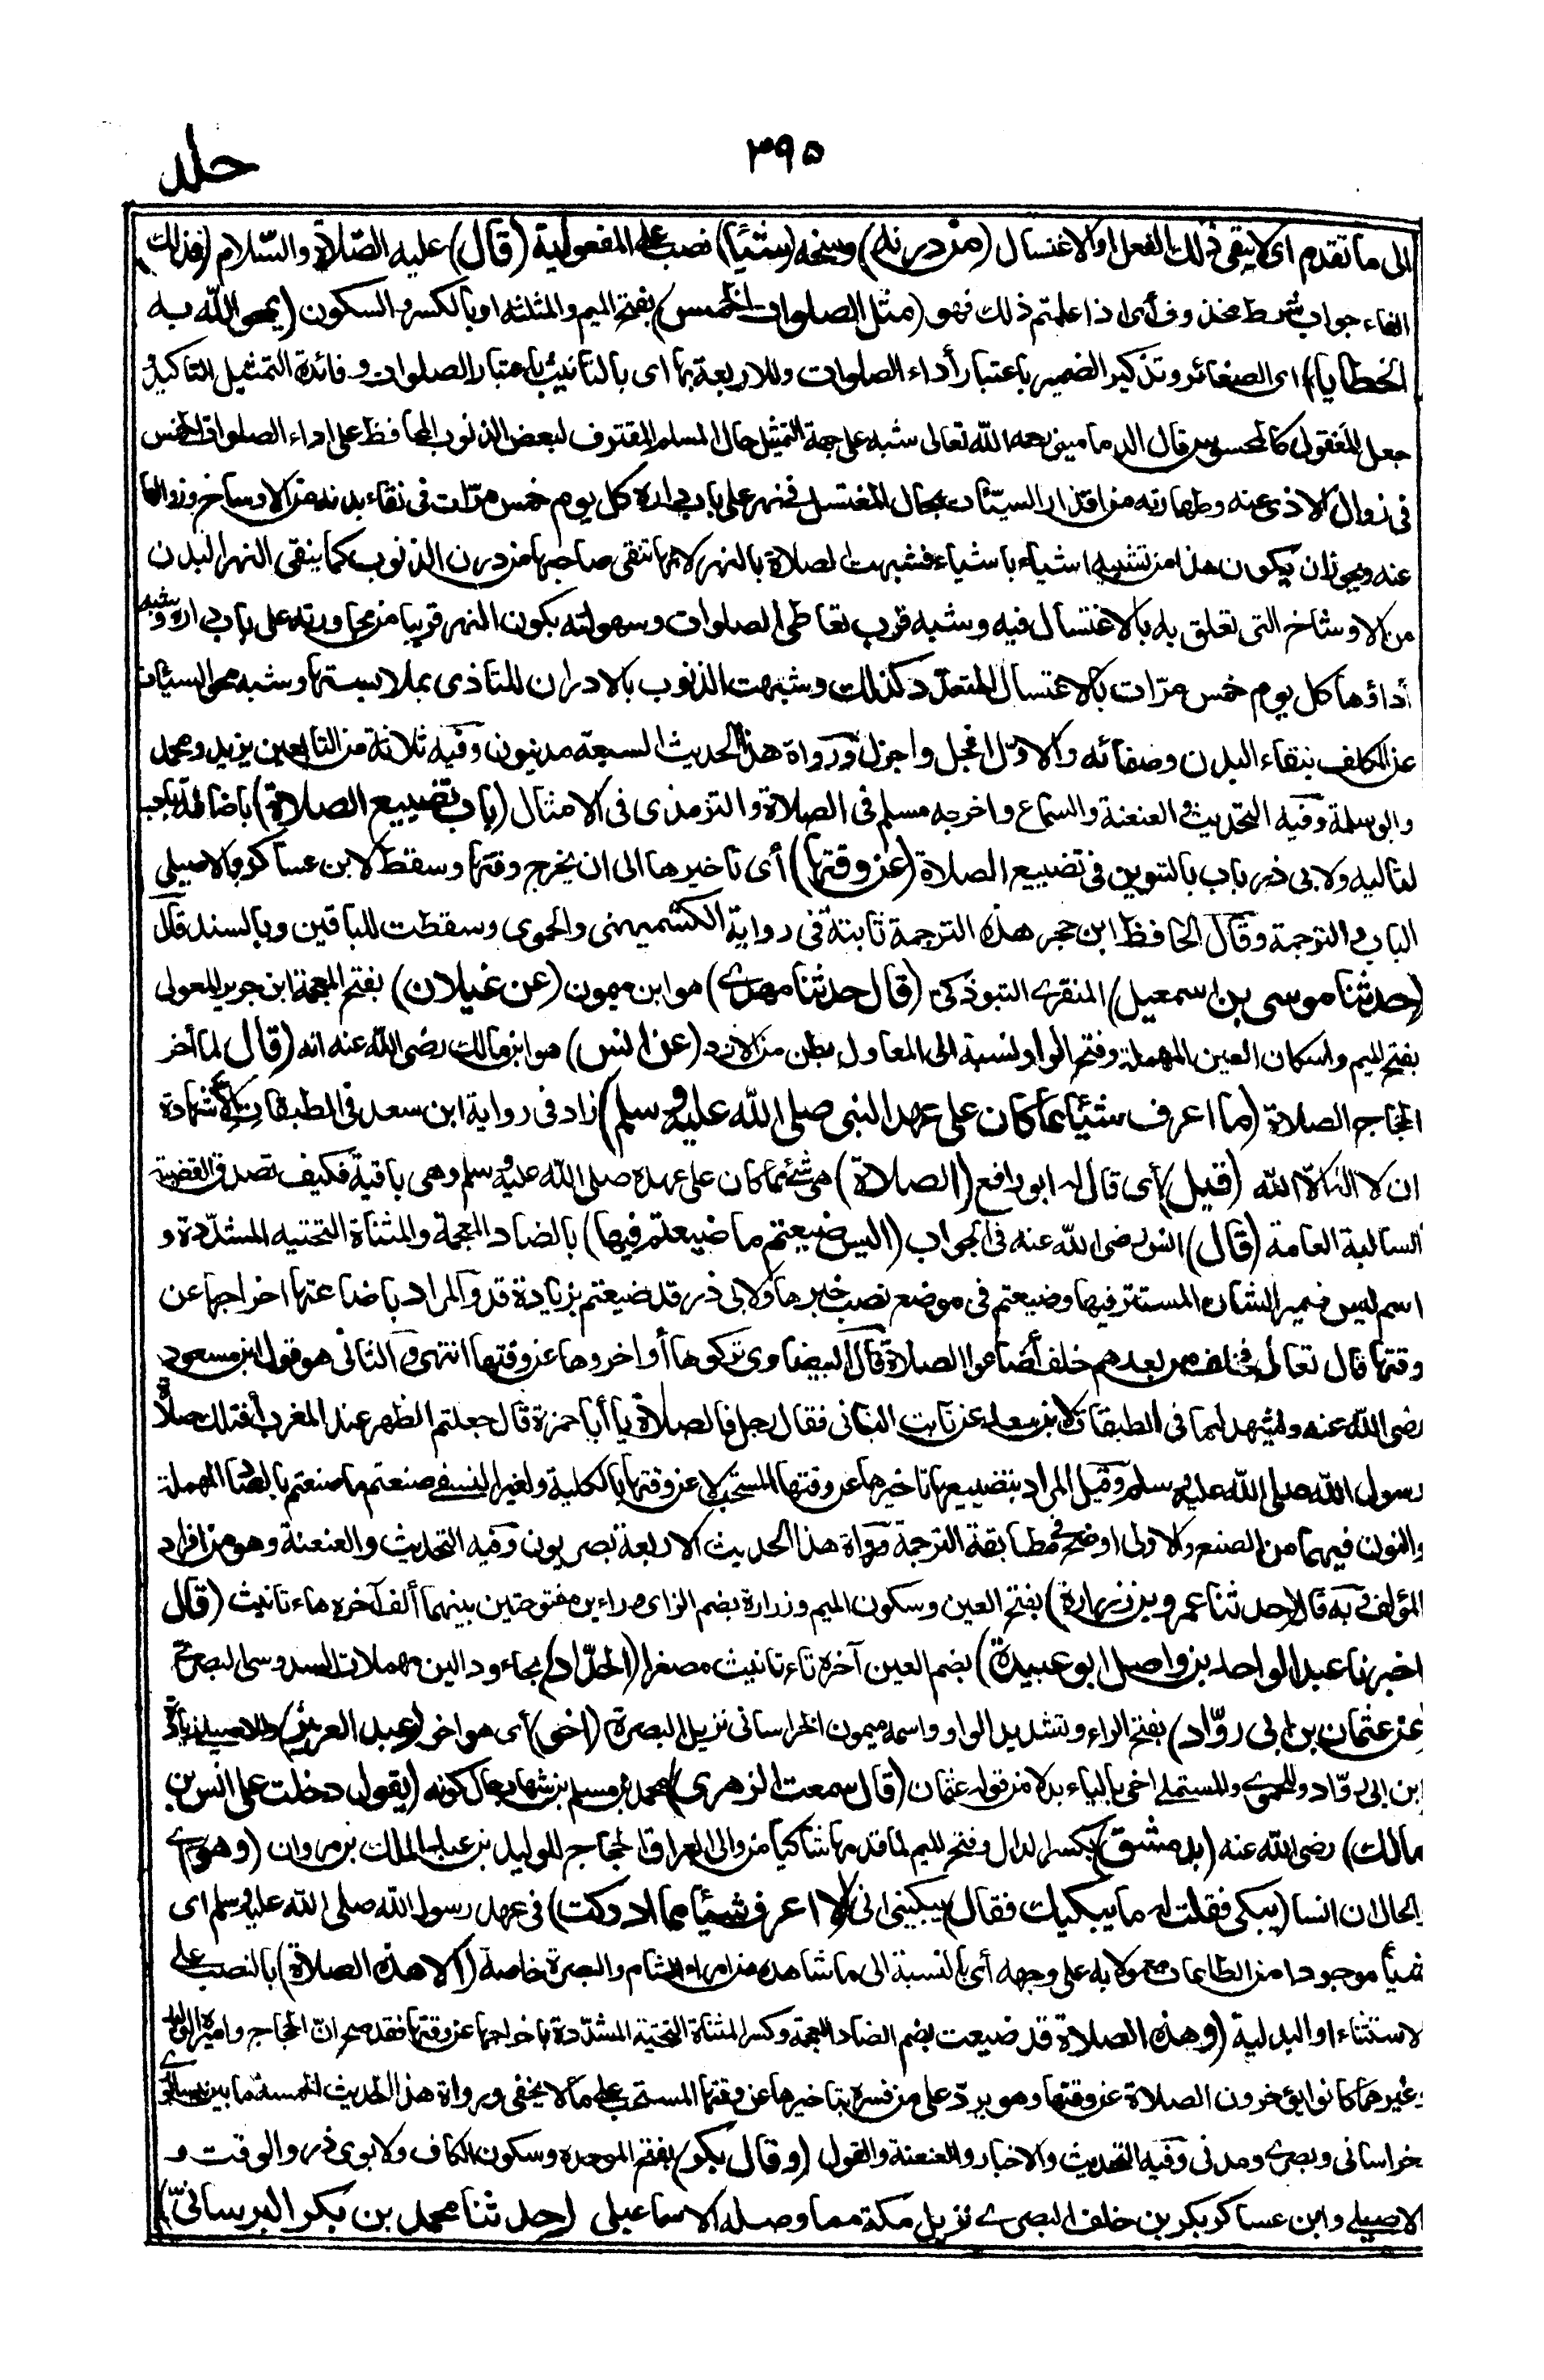 ٣٩٥
جلد
الى ما تقدم اى لا يبقى ذلك الفعل او الاغتسال (من درنه) وسخه (شيئا) نصب على المفعولية (قال) عليه الصّلاة والسّلام (فذلك)
الفاء جواب شرط محذوف أى اذا علمتم ذلك فهو (مثل الصلوات الخمس) بفتح الميم والمثلثه او بالكسر والسكون (يمحو الله به
الخطايا) اى الصغائر وتذكير الضمير باعتبار أداء الصلوات وللاربعة بها اى بالتانيث باعتبار الصلوات وفائدة التمثيل التاكيد و
جعل المعقول كالمحسوس قال الدمامينى رحمه الله تعالى شبه على جهة التمثيل حال المسلم المقترف لبعض الذنوب المحافظ على اداء الصلوات الخمس
فى زوال الاذى عنه وطهارته من اقذار السيّئات بحال المغتسل فى نهر على باب داره كل يوم خمس مرّات فى نقاء بدنه من الاوساخ وزوالها
عنه ويجوز ان يكون هذا من تشبيه اشياء باشياء فشبهت الصلاة بالنهر لانها تنقى صاحبها من درن الذنوب كما ينقى النهر البدن
من الاوساخ التى تعلق به بالاغتسال فيه وشبه قرب تعاطى الصلوات وسهولته بكون النهر قريبا من مجاورته على باب داره وشبه
أداؤها كل يوم خمس مرّات بالاغتسال المتعدّد كذلك وشبهت الذنوب بالادران للتاذى بملابستها وشبه محو السيئات
عن المكلف بنقاء البدن وصفائه والاوّل افحل واجزل ورواة هذا الحديث السبعة مدنيون وفيه ثلاثة من التابعين يزيد ومحمد
وابو سلمة وفيه التحديث والعنعنة والسماع واخرجه مسلم فى الصلاة والترمذى فى الامثال (باب تضييع الصلاة) باضافة باب
لتاليه ولابى ذر باب بالتنوين فى تضييع الصلاة (عن وقتها) أى تاخيرها الى ان يخرج وقتها وسقط لابن عساكر والاصيلى
الباب والترجمة وقال الحافظ ابن حجر هذه الترجمة ثابتة فى رواية الكشميهنى والحموى وسقطت للباقين وبالسند قال
(حدثنا موسى بن اسمعيل) المنقرى التبوذكى (قال حدثنا مهدى) هو ابن ميمون (عن غيلان) بفتح المعجمة ابن جرير المعولى
بفتح الميم واسكان العين المهملة وفتح الواو نسبة الى المعاول بطن من الازد (عن انس) هو ابن مالك رضى الله عنه انه (قال) لما أخر
الحجاج الصلاة (ما اعرف شيئا مما كان على عهد النبى صلى الله عليه وسلم) زاد فى رواية ابن سعد فى الطبقات الا شهادة
ان لا اله الا الله (قيل) أى قال له ابو رافع (الصلاة) هى شئ مما كان على عهده صلى الله عليه وسلم وهى باقية فكيف تصدق القضية
السالبة العامة (قال) انس رضى الله عنه فى الجواب (اليس ضيعتم ما ضيعتم فيها) بالضاد المعجمة والمثناة التحتيه المشدّدة و
اسم ليس ضمير الشان المستتر فيها وضيعتم فى موضع نصب خبرها ولابى ذر قد ضيعتم بزيادة قد والمراد باضاعتها اخراجها عن
وقتها قال تعالى فخلف من بعدهم خلف أضاعوا الصلاة قال البيضاوى تركوها أو اخروها عن وقتها انتهى والثانى هو قول ابن مسعود
رضى الله عنه ويشهد لما فى الطبقات لابن سعد عن ثابت البنانى فقال رجل فالصلاة يا أبا حمزة قال جعلتم الظهر عند المغرب أفتلك صلاة
رسول الله صلى الله عليه وسلم وقيل المراد بتضييعها تاخيرها عن وقتها المستحب لا عن وقتها بالكلية ولغير النسفى صنعتم ما صنعتم بالصاد المهملة
والنون فيهما من الصنع والاولى اوضح فى مطابقة الترجمة ورواة هذا الحديث الاربعة بصريون وفيه التحديث والعنعنة وهو من افراد
المؤلف وبه قال (حدثنا عمرو بن زرارة) بفتح العين وسكون الميم وزرارة بضم الزاى وراءين مفتوحتين بينهما ألف آخره هاء تانيث (قال
اخبرنا عبد الواحد بن واصل ابو عبيدة) بضم العين آخره تاء تانيث مصغرا (الحدّاد) بحاء ودالين مهملات السدوسى البصرى
(عن عثمان بن ابى روّاد) بفتح الراء وتشديد الواو واسمه ميمون الخراسانى نزيل البصرة (اخى) أى هو اخو (عبد العزيز) وللاصيلى زيادة
ابن ابى روّاد وللحموى والمستملى اخى بالياء بدلا من قوله عثمان (قال سمعت الزهرى) محمد بن مسلم بن شهاب حال كونه (يقول دخلت على انس بن
مالك) رضى الله عنه (بدمشق) بكسر الدال وفتح الميم لما قدمها شاكيا من والى العراق الحجاج للوليد بن عبد الملك بن مروان (وهو) اى
والحال ان انسا (يبكى فقلت له ما يبكيك فقال) يبكينى انى (لا اعرف شيئا مما ادركت) فى عهد رسول الله صلى الله عليه وسلم اى
شيأ موجودا من الطاعات معمولا به على وجهه أى بالنسبة الى ما شاهده من امراء الشام والبصرة خاصة (الا هذه الصلاة) بالنصب على
الاستثناء او البدلية (وهذه الصلاة قد ضيعت) بضم الضاد المعجمة وكسر المثناة التحتية المشدّدة باخراجها عن وقتها فقد صح انّ الحجاج واميره الوليد
وغيرهما كانوا يؤخرون الصلاة عن وقتها وهو يردّ على من فسره بتاخيرها عن وقتها المستحب على ما لا يخفى ورواة هذا الحديث الخمسة ما بين نيسابورى
خراسانى وبصرى ومدنى وفيه التحديث والاخبار والعنعنة والقول (وقال بكر) بفتح الموحدة وسكون الكاف ولابوى ذر والوقت و
الاصيلى وابن عساكر بكر بن خلف البصرى نزيل مكة مما وصله الاسماعيلى (حدثنا محمد بن بكر البرسانىّ)